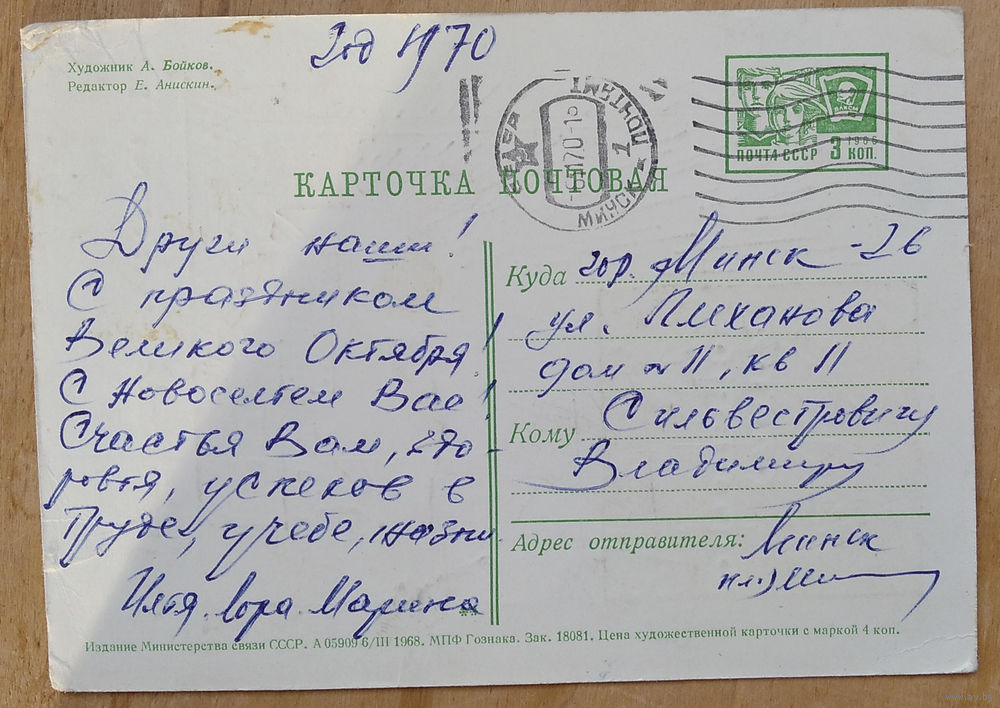 Художник А. Бойков.
Редактор Е. Анискин.
год 1970
МИНСК ПОЧТАМТ
1
ПОЧТА СССР 3 КОП.
1966
ВЛКСМ
КАРТОЧКА ПОЧТОВАЯ
Други наши!
С праздником
Великого Октября!
С Новоселием Вас!
Счастья Вам, здо-
ровья, успехов в
труде, учебе, жизни
Илья. Лора. Марина
Куда гор. Минск-26
ул. Плеханова
дом № 11, кв 11
Кому Сильвестровичу
Владимиру
Адрес отправителя: Минск
Издание Министерства связи СССР. А 05909 6/III 1968. МПФ Гознака. Зак. 18081. Цена художественной карточки с маркой 4 коп.